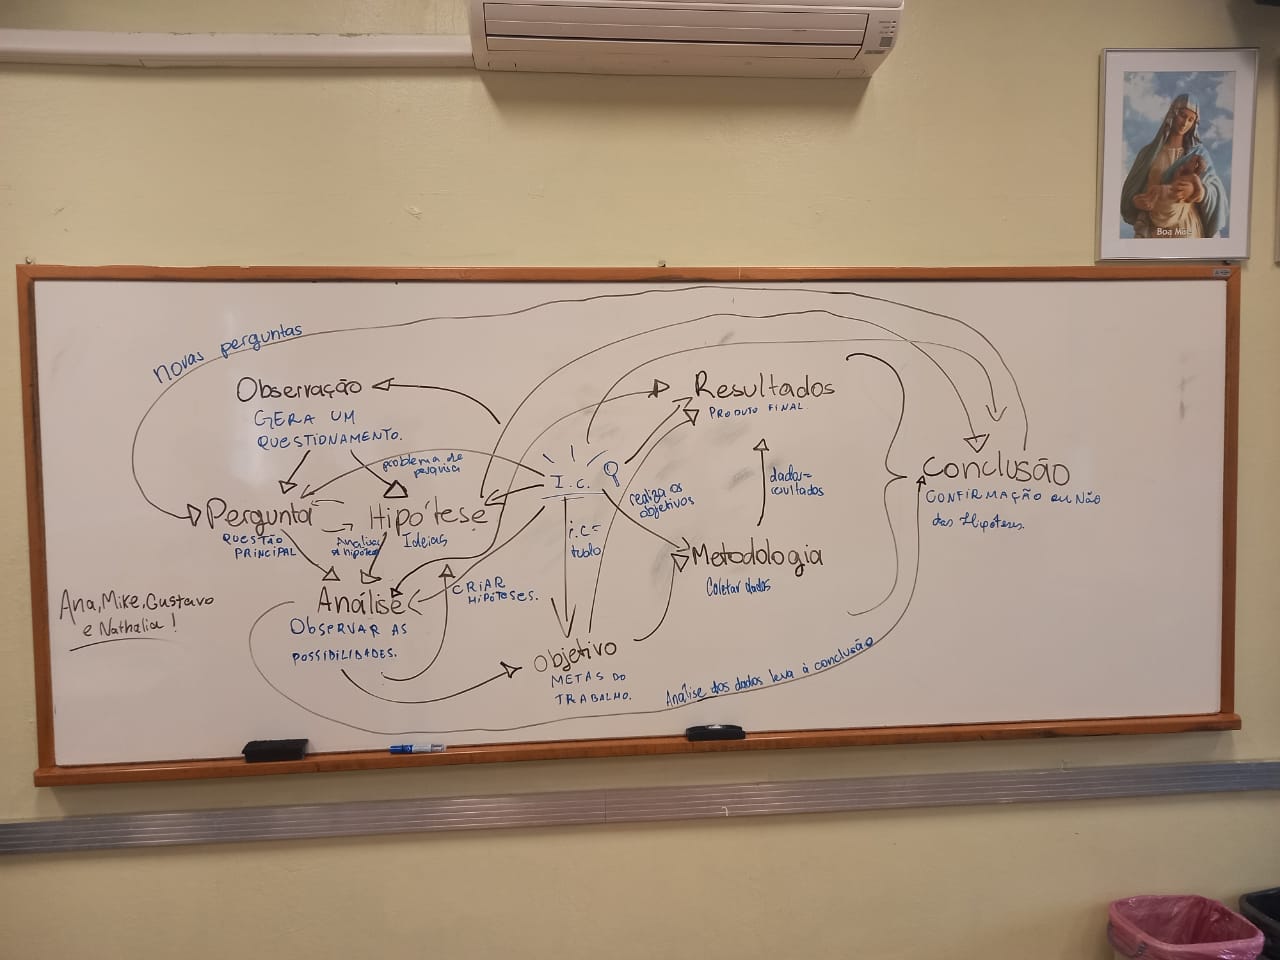 novas perguntas
Observação
GERA UM
QUESTIONAMENTO.
problema de
pesquisa
Pergunta
QUESTÃO
PRINCIPAL
Hipótese
Ideias
Análise
OBSERVAR AS
POSSIBILIDADES.
CRIAR
HIPÓTESES.
Ana, Mike, Gustavo
e Nathalia!
I.C.
i.c=
tudo
Objetivo
METAS DO
TRABALHO.
realiza os
objetivos
Resultados
PRODUTO FINAL
dados=
resultados
Metodologia
Coletar dados
Análise dos dados leva à conclusão
Conclusão
CONFIRMAÇÃO ou NÃO
das Hipóteses.
Boa Mãe